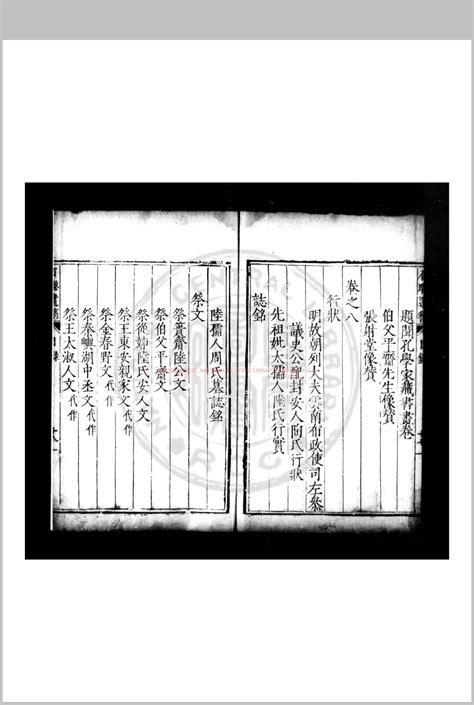 題聞孔學家藏書畫卷
伯父平齋先生像贊
張射堂像贊
卷之八
行狀
明故朝列大夫雲南布政使司左叅
議史公配封安人閻氏行狀
先祖妣太孺人陸氏行實
誌銘
目錄
陸孺人周氏墓誌銘
祭文
祭簣齋陸公文
祭伯父平齋文
祭從姊陸氏安人文
祭王東安親家文代作
祭金春野文代作
祭秦嶼湖中丞文代作
祭王太淑人文代作
目錄